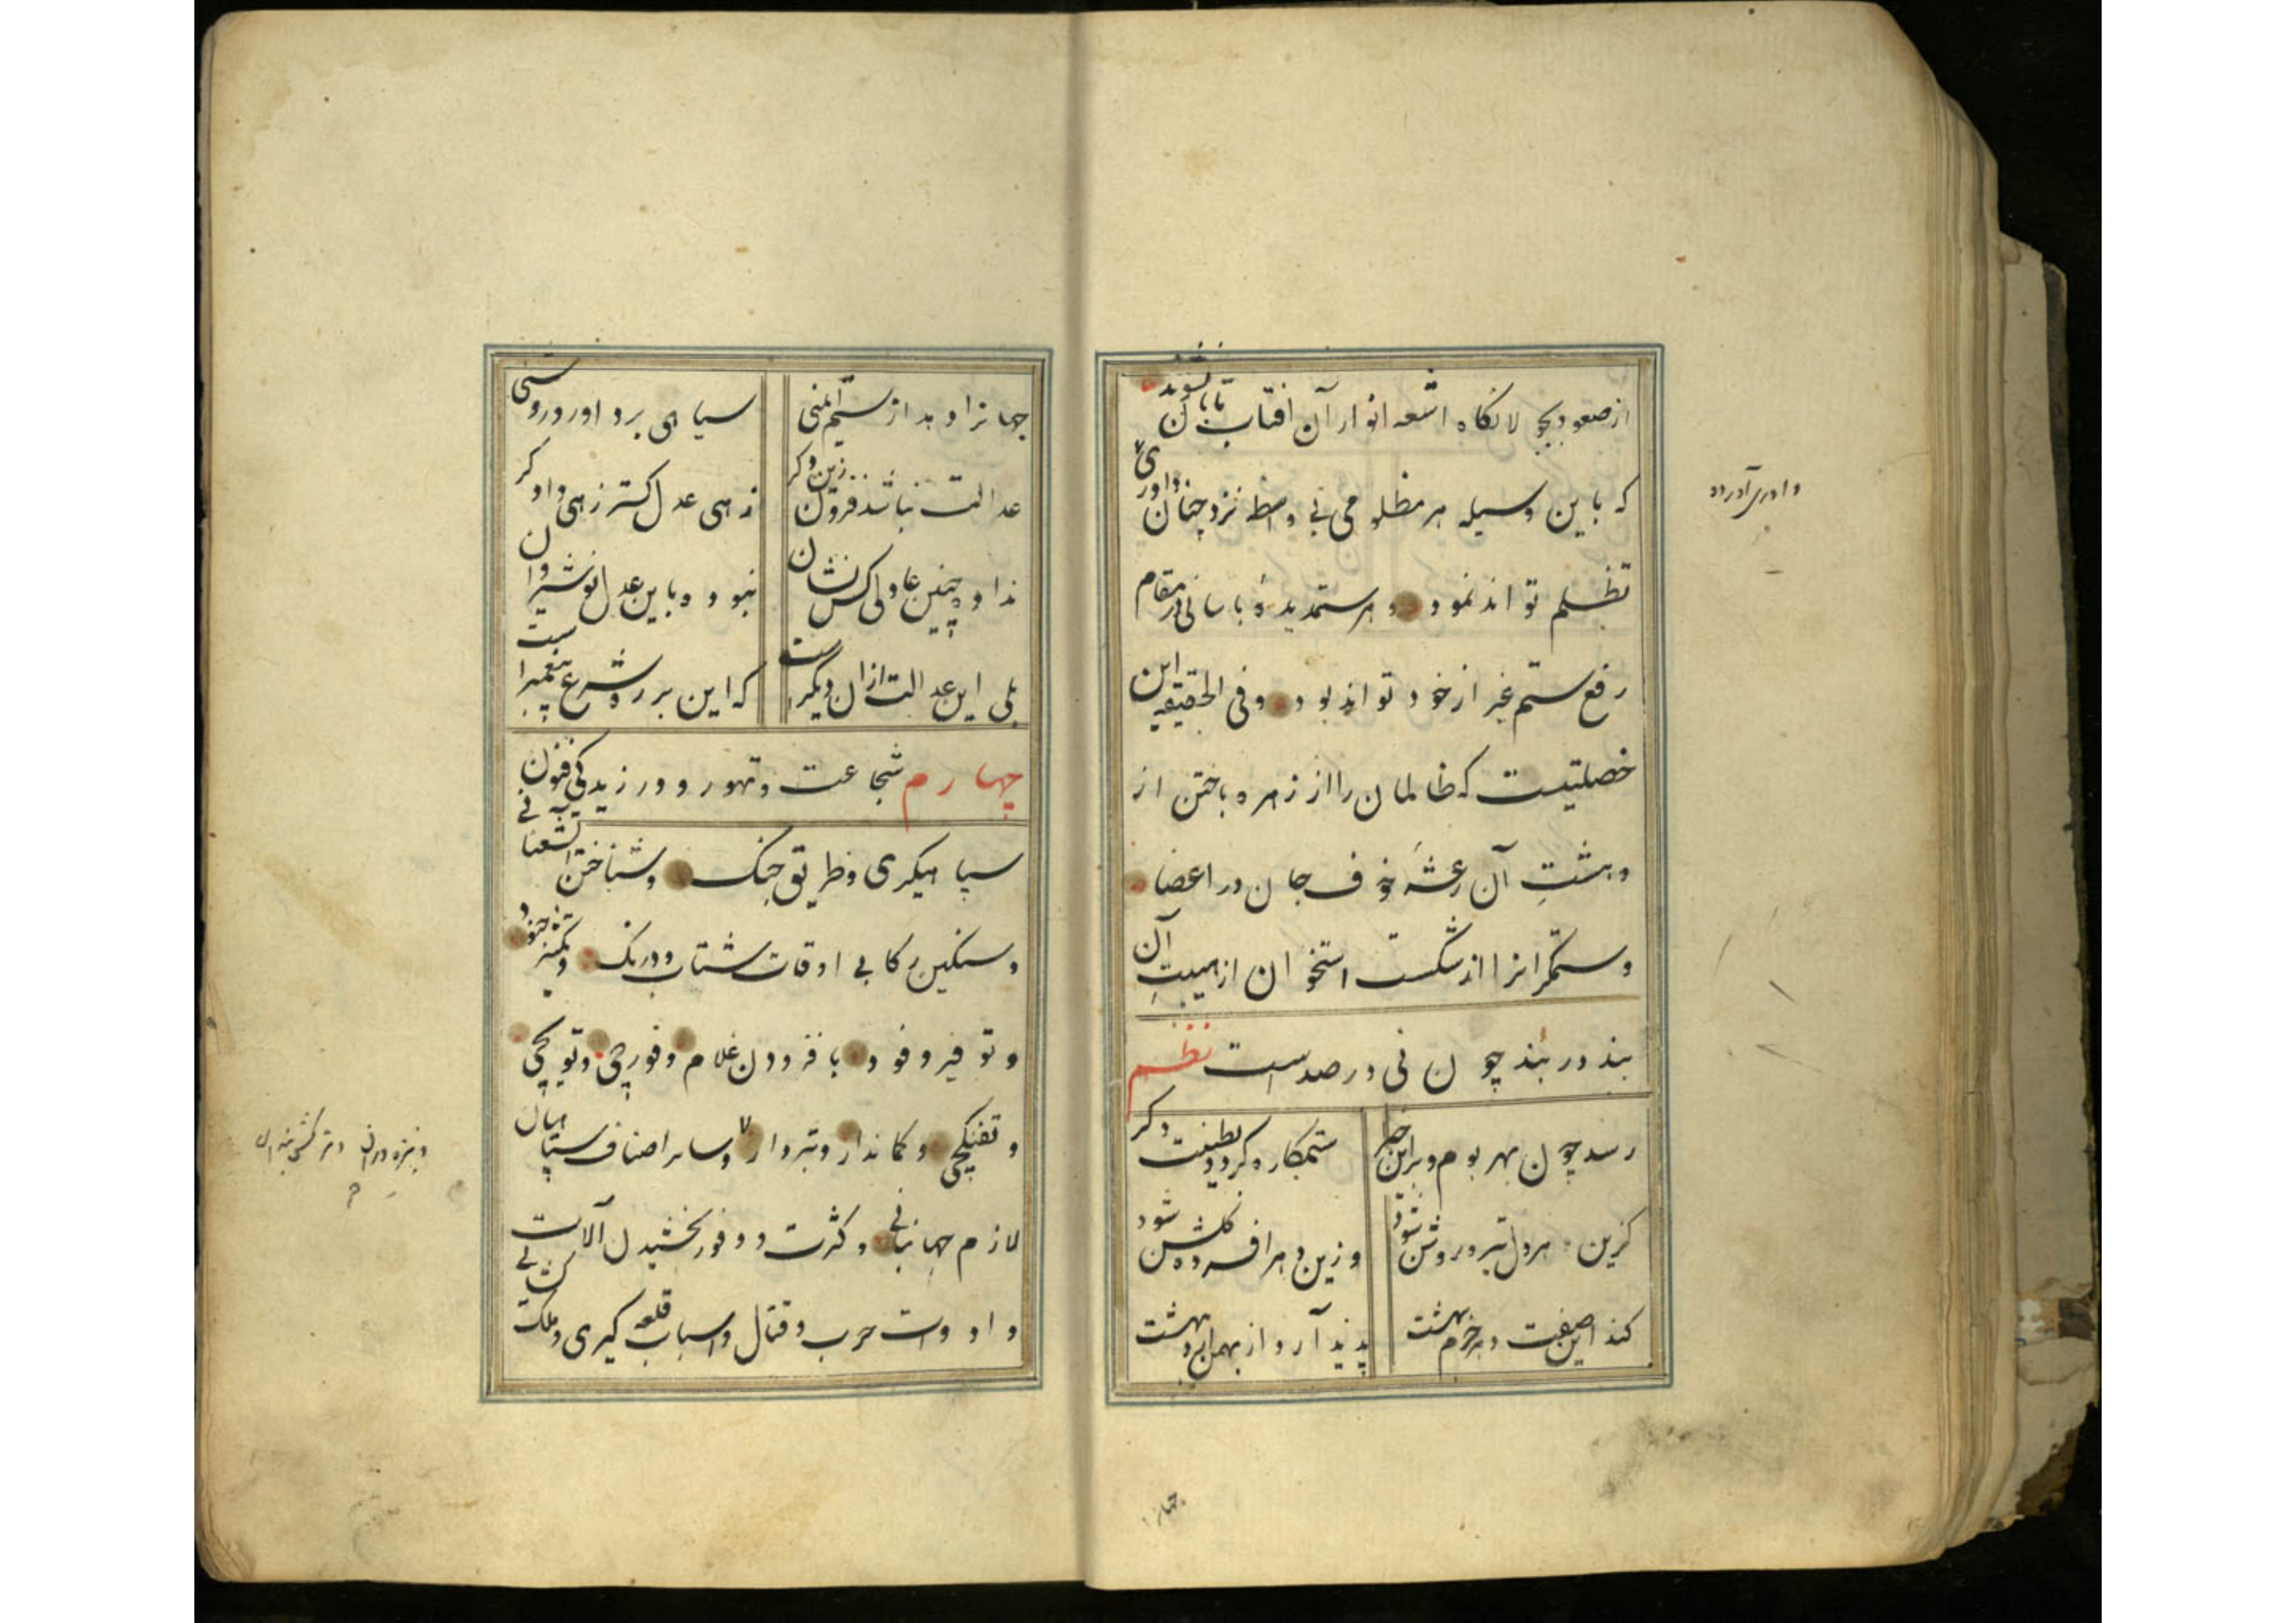 از صعود بجولانگاه اشعه انوار آن افتاب تابان نشوند
که باین وسیله هر مظلومی بی واسطه نزد چنان داوری
تظلم تواند نمود و هر ستمدیدهٔ باسانی در مقام
رفع ستم غیر از خود تواند بود و فی الحقیقه این
خصلتیست که ظالمان را از زهره باختن از
دهشتِ آن رعشهٔ خوف جان در اعضا
و ستمگرانرا از شکست استخوان از هیبتِ آن
بند در بند چون نی در صداست نظم
رسد چون بهر بوم و بر این خبر
ستمکاره گردد بطینت دگر
کزین هر دل تیره روشن شود
وزین هر افسرده گلشن شود
کند این صفت دهر خرم بهشت
پدید آرد از بهمن اردیبهشت
جهانرا
داوری آورده
جهانرا دهد از ستم ایمنی
سیاهی برد آورد روشنی
عدالت نباشد فزون زین دگر
زهی عدل گستر زهی دادگر
نداد چنین عادلی کس نشان
نبود و باین عدل نوشیروان
بلی این عدالت از آن دیگر است
که این بر ره شرع پیغمبر است
چهارم شجاعت و تهور و ورزیدگی فنون
سپاهیگری و طریق جنگ و شناختن آشنایی
و سنگین رکابی اوقات شتاب و درنگ و تکثیر جنود
و توفیر وفود بافزودن غلام و قورچی و توپچی
و تفنگچی و کماندار و تبردار و سایر اصناف سپاهیان
لازم جهانبانی و کثرت و وفور بخشیدن آلات
و ادوات حرب و قتال و اسباب قلعه گیری و ملک
و نیزه وران و ترکش بندان